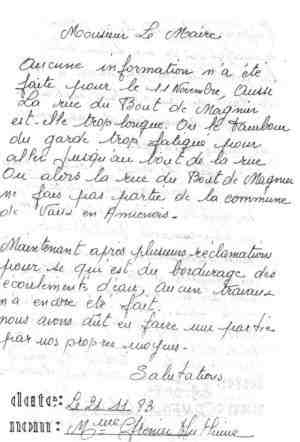 Monsieur Le Maire
Aucune information n'a été
faite pour le 11 Novembre, Aussi
La rue du Bout de Magnier
est-elle trop longue. Ou le tambour
du garde trop fatigué pour
aller jusqu'au bout de la rue
Ou alors la rue du Bout de Magnier
ne fais pas partie de la commune
de Vaux en Amienois.
Maintenant après plusieurs réclamations
pour se qui est du bordurage des
écoulements d'eau, aucun travaux
n'a encore été fait.
nous avons dût en faire une partie
par nos propres moyens.
Salutations
date: Le 21 11 93
nom: Mme